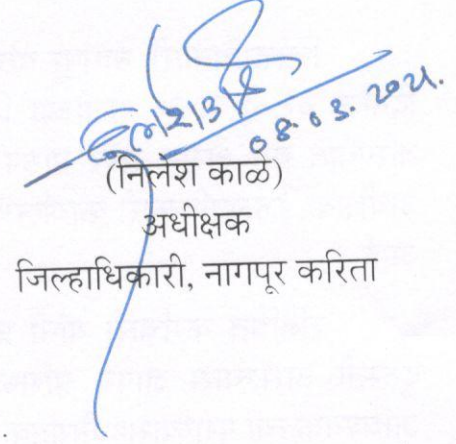 08.03.2021.
(निलेश काळे)
अधीक्षक
जिल्हाधिकारी, नागपूर करिता